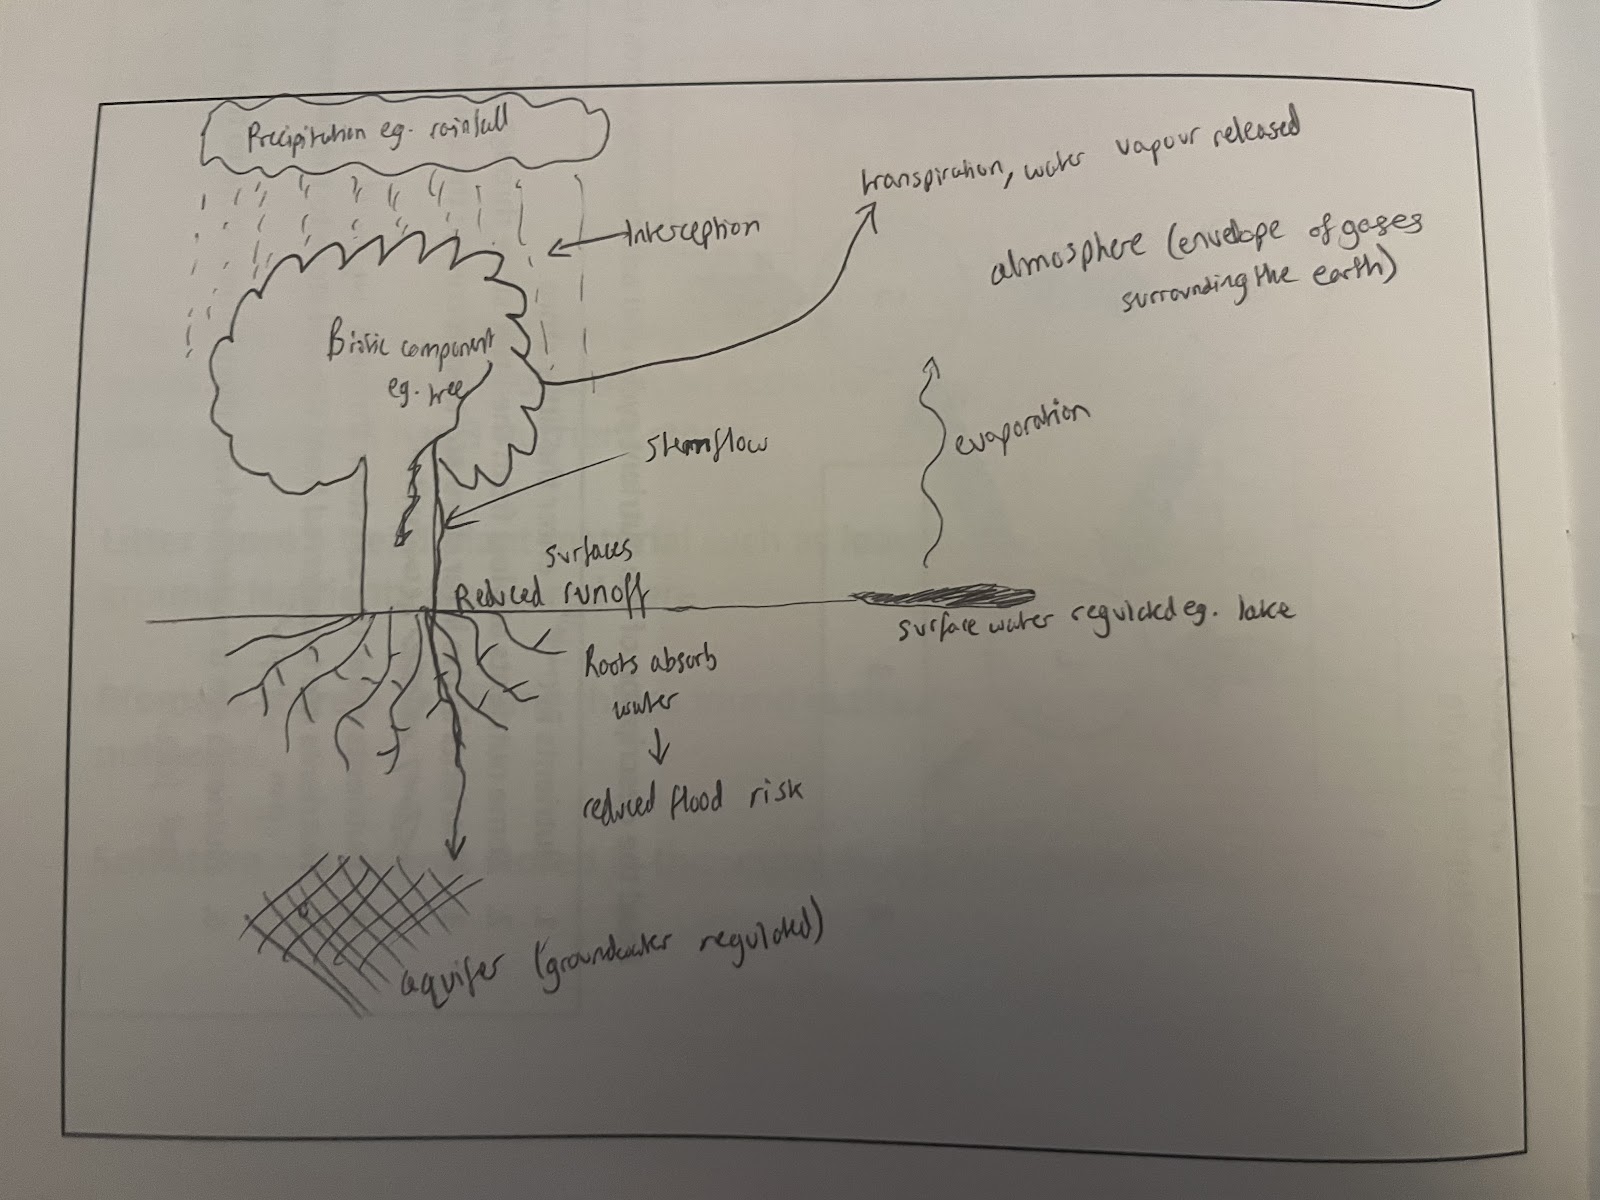 Precipitation eg. rainfall
transpiration, water vapour released
Interception
atmosphere (envelope of gases
surrounding the earth)
Biotic component
eg. tree
evaporation
stemflow
surfaces
Reduced runoff
surface water regulated eg. lake
Roots absorb
water
reduced flood risk
aquifer (groundwater regulated)